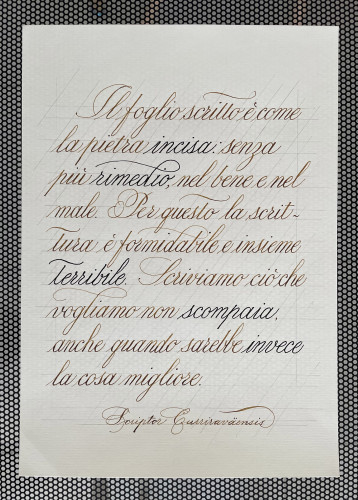 Il foglio scritto è come
la pietra incisa: senza
più rimedio, nel bene e nel
male. Per questo la scrit-
tura è formidabile e insieme
terribile. Scriviamo ciò che
vogliamo non scompaia,
anche quando sarebbe invece
la cosa migliore.
Scriptor